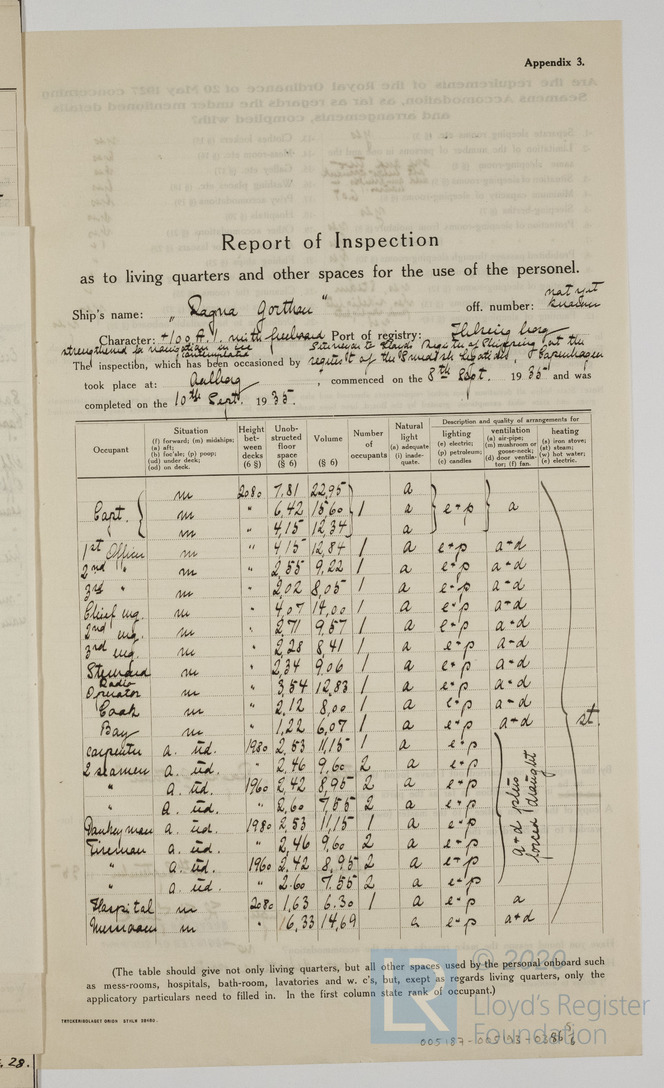 Appendix 3.
Report of Inspection
as to living quarters and other spaces for the use of the personel.
not yet
Ship's name: „ Ragna Gorthon " off. number: known
Character: +100 A.1. with freeboard Port of registry: Helsingborg
strengthened for navigation in ice Surveyor to Lloyds Register of Shipping at the
contemplated
The inspection, which has been occasioned by request of the Swedish Legation, Copenhagen
took place at: Aalborg, commenced on the 8th Sept. 1935 and was
completed on the 10th Sept. 1935.
Occupant Situation (f) forward; (m) midships; (a) aft; (b) foc'sle; (p) poop; (ud) under deck; (od) on deck. Height between decks (6 §) Unobstructed floor space (§ 6) Volume (§ 6) Number of occupants Natural light (a) adequate (i) inadequate. Description and quality of arrangements for lighting (e) electric; (p) petroleum; (c) candies ventilation (a) air-pipe; (m) mushroom or goose-neck; (d) door ventilator; (f) fan. heating (s) iron stove; (st) steam; (w) hot water; (e) electric.
m 2080 7,81 22,95 a
Capt. m " 6,42 15,60 1 a e+p a
m " 4,15 12,34 a
1st Officer m " 4,15 12,84 1 a e+p a+d
2nd " m " 2,55 9,22 1 a e+p a+d
3rd " m " 2,02 8,05 1 a e+p a+d
Chief eng. m " 4,07 14,00 1 a e+p a+d
2nd eng. m " 2,71 9,57 1 a e+p a+d
3rd eng. m " 2,28 8,41 1 a e+p a+d
Steward m " 2,34 9,06 1 a e+p a+d
Radio
Operator m " 3,54 12,83 1 a e+p a+d
Cook m " 2,12 8,00 1 a e+p a+d
Boy m " 1,22 6,07 1 a e+p a+d st.
Carpenter a. ud. 1980 2,53 11,15 1 a e+p
2 seamen a. ud. " 2,46 9,60 2 a e+p
" a. ud. 1960 2,42 8,95 2 a e+p
" a. ud. " 2,60 7,55 2 a e+p a+d plus forced draught
Donkeyman a. ud. 1980 2,53 11,15 1 a e+p
Fireman a. ud. " 2,46 9,60 2 a e+p
" a. ud. 1960 2,42 8,95 2 a e+p
" a. ud. " 2.60 7.55 2 a e+p
Hospital m 2080 1,63 6.30 1 a e+p a
Messroom m " 16,33 14,69 a e+p a+d
(The table should give not only living quarters, but all other spaces used by the personal onboard such
as mess-rooms, hospitals, bath-room, lavatories and w. c's, but, exept as regards living quarters, only the
applicatory particulars need to filled in. In the first column state rank of occupant.)
TRYCKERIBOLAGET ORION STHLM
© 2020
Lloyd's Register
Foundation
28.